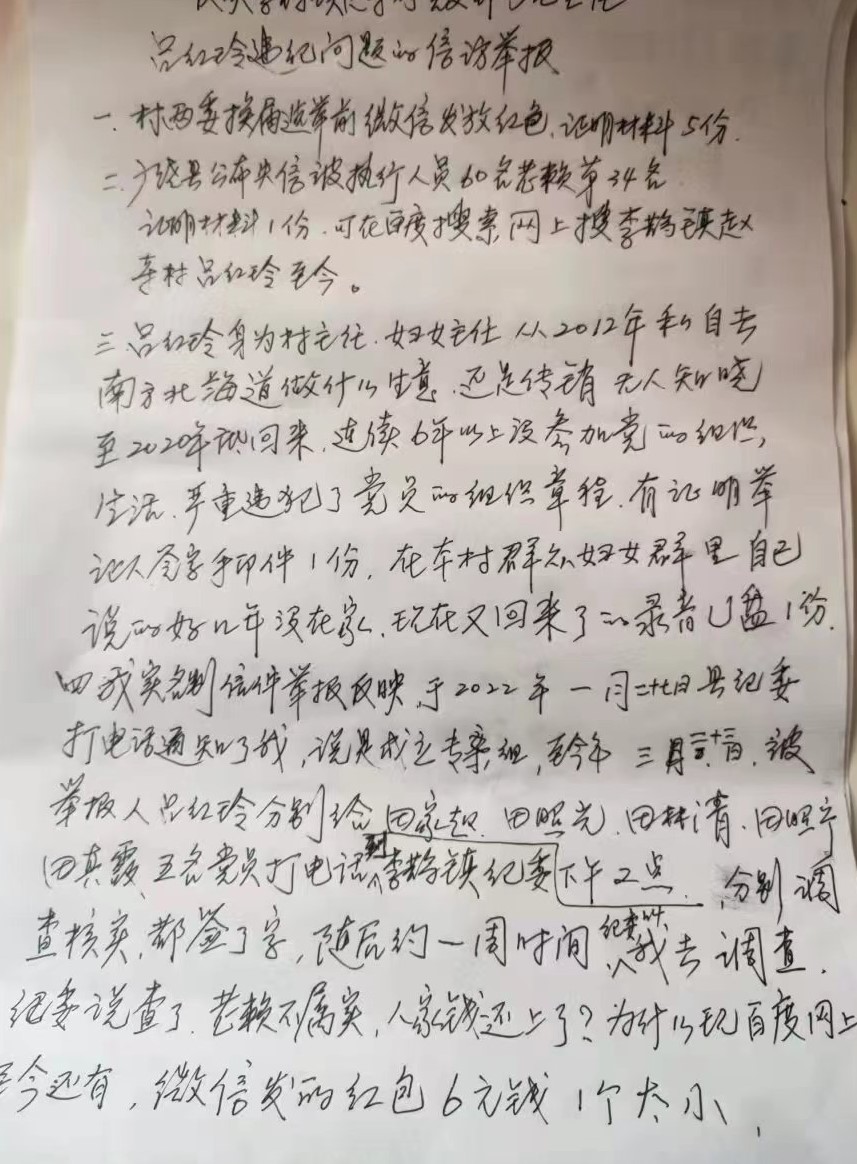 吕红玲违纪问题的信访举报
一、村两委换届选举前微信发放红色、证明材料5份.
二、广饶县公布失信被执行人员60名老赖第34名
证明材料1份.可在百度搜索,网上搜李鹊镇赵
寺村吕红玲至今。
三吕红玲身为村主任.妇女主任从2012年私自去
南方北海道做什么生意.还是传销无人知晓
至2020年底回来.连续6年以上没参加党的组织,
生活.严重违犯了党员的组织章程.有证明举
证人签字手印件1份,在本村群众妇女群里自己
说的好几年没在家.现在又回来了的录音U盘1份.
四我实名制信件举报反映,于2022年一月二十七日县纪委
打电话通知了我,说是成立专案组,至今年三月二十三日.被
举报人吕红玲分别给田家起.田照光.田林清.田照宁
田真霞、五名党员打电话到李鹊镇纪委下午2点.分别调
查核实,都签了字,随后约一周时间纪委叫我去调查.
纪委说查了.老赖不属实,人家钱还上了?为什么现百度网上
至今还有,微信发的红包6元钱1个太小,